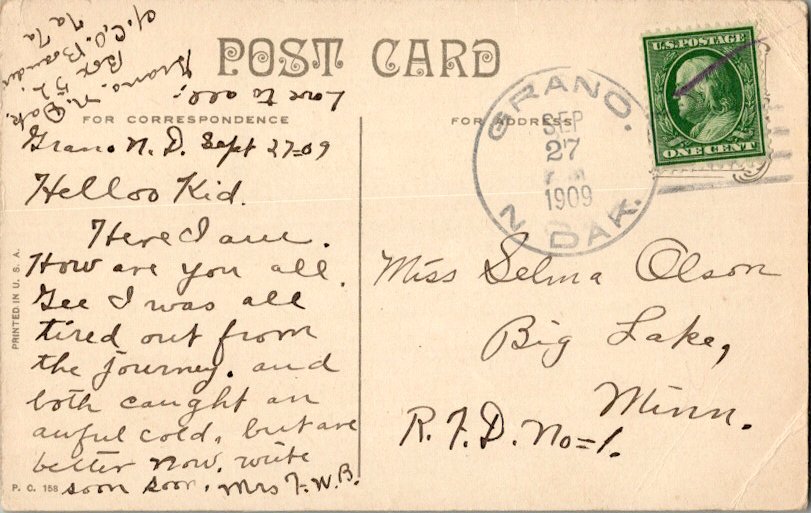 POST CARD
FOR CORRESPONDENCE
FOR ADDRESS
Love to all;
Grano. N. Dak.
Box 52
Grano N. D. Sept 27=09
Helloo Kid.
Here I am.
How are you all.
Gee I was all
tired out from
the journey. and
both caught an
awful cold. but are
better now. write
soon soon. Mrs F. W. B.
U.S. POSTAGE
ONE CENT
GRANO.
SEP
27
1909
N. DAK.
Miss Selma Olson
Big Lake,
Minn.
R. F. D. No=1.
PRINTED IN U. S. A.
P. C. 158